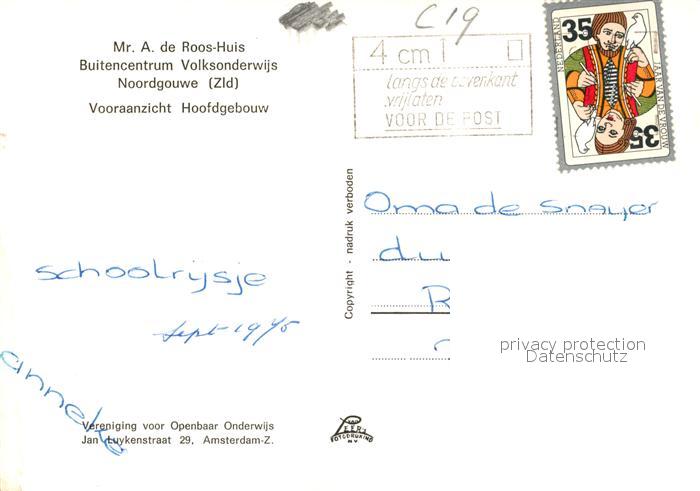 C19
Mr. A. de Roos-Huis
Buitencentrum Volksonderwijs
Noordgouwe (Zld)
Vooraanzicht Hoofdgebouw
4 cm
langs de bovenkant
vrijlaten
VOOR DE POST
NEDERLAND
35
JAAR VAN DE VROUW
35
Copyright - nadruk verboden
Oma de Snayer
du
R
schoolrijsje
sept 1975
anneke
privacy protection
Datenschutz
Vereniging voor Openbaar Onderwijs
Jan Luykenstraat 29, Amsterdam-Z.
LEER'S
FOTODRUKIND
N.V.